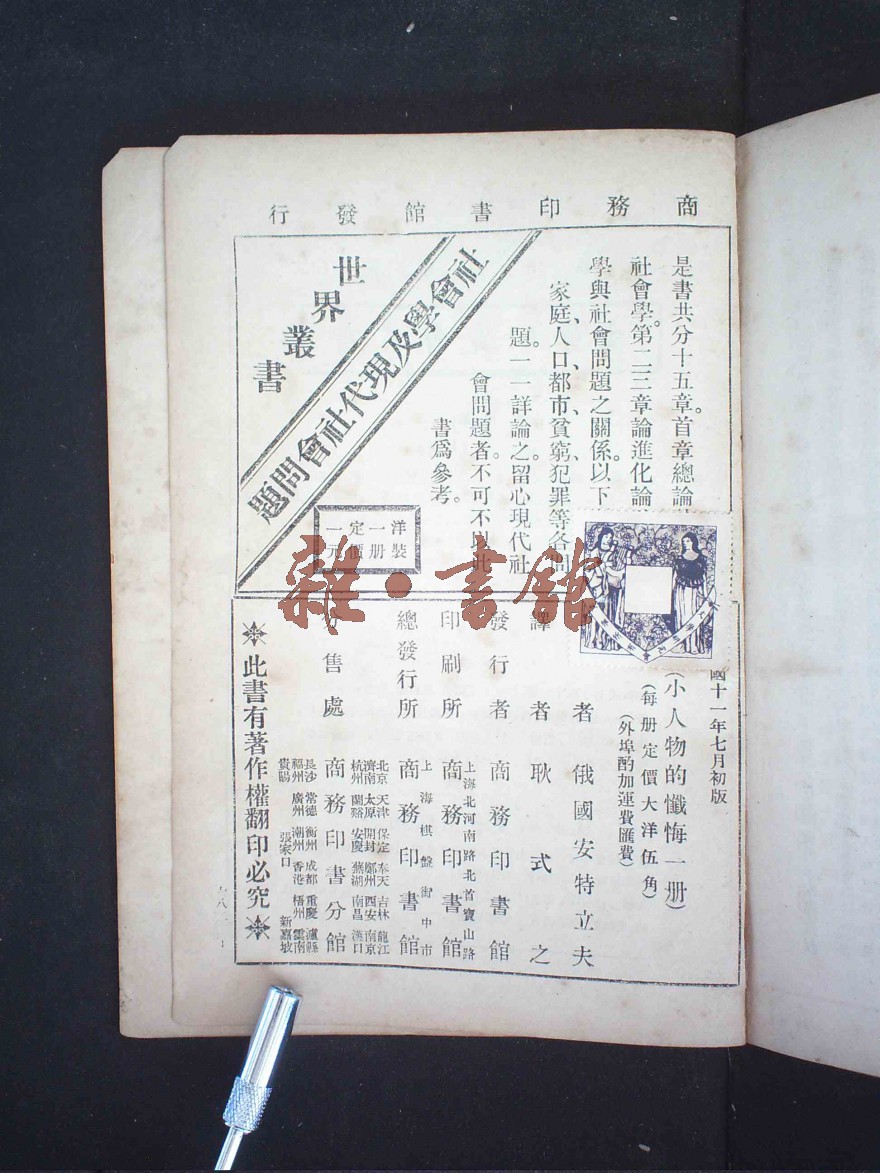 商務印書館發行
是書共分十五章。首章總論
社會學。第二三章論進化論
學與社會問題之關係。以下
家庭、人口、都市、貧窮、犯罪等各問
題。一一詳論之。留心現代社
會問題者。不可不以此
書爲參考。
社會學及現代社會問題
世界叢書
洋裝
一册
定價
一元
國十一年七月初版
(小人物的懺悔一册)
(每册定價大洋伍角)
(外埠酌加運費匯費)
者 俄國安特立夫
譯者 耿式之
發行者 商務印書館
上海北河南路北首寶山路
印刷所 商務印書館
上海棋盤街中市
總發行所 商務印書館
售處 商務印書分館
北京 天津 保定 奉天 吉林 龍江
濟南 太原 開封 鄭州 西安 南京
杭州 蘭谿 安慶 蕪湖 南昌 漢口
長沙 常德 衡州 成都 重慶 瀘縣
福州 廣州 潮州 香港 梧州 雲南
貴陽 張家口 新嘉坡
此書有著作權翻印必究
雜·書館